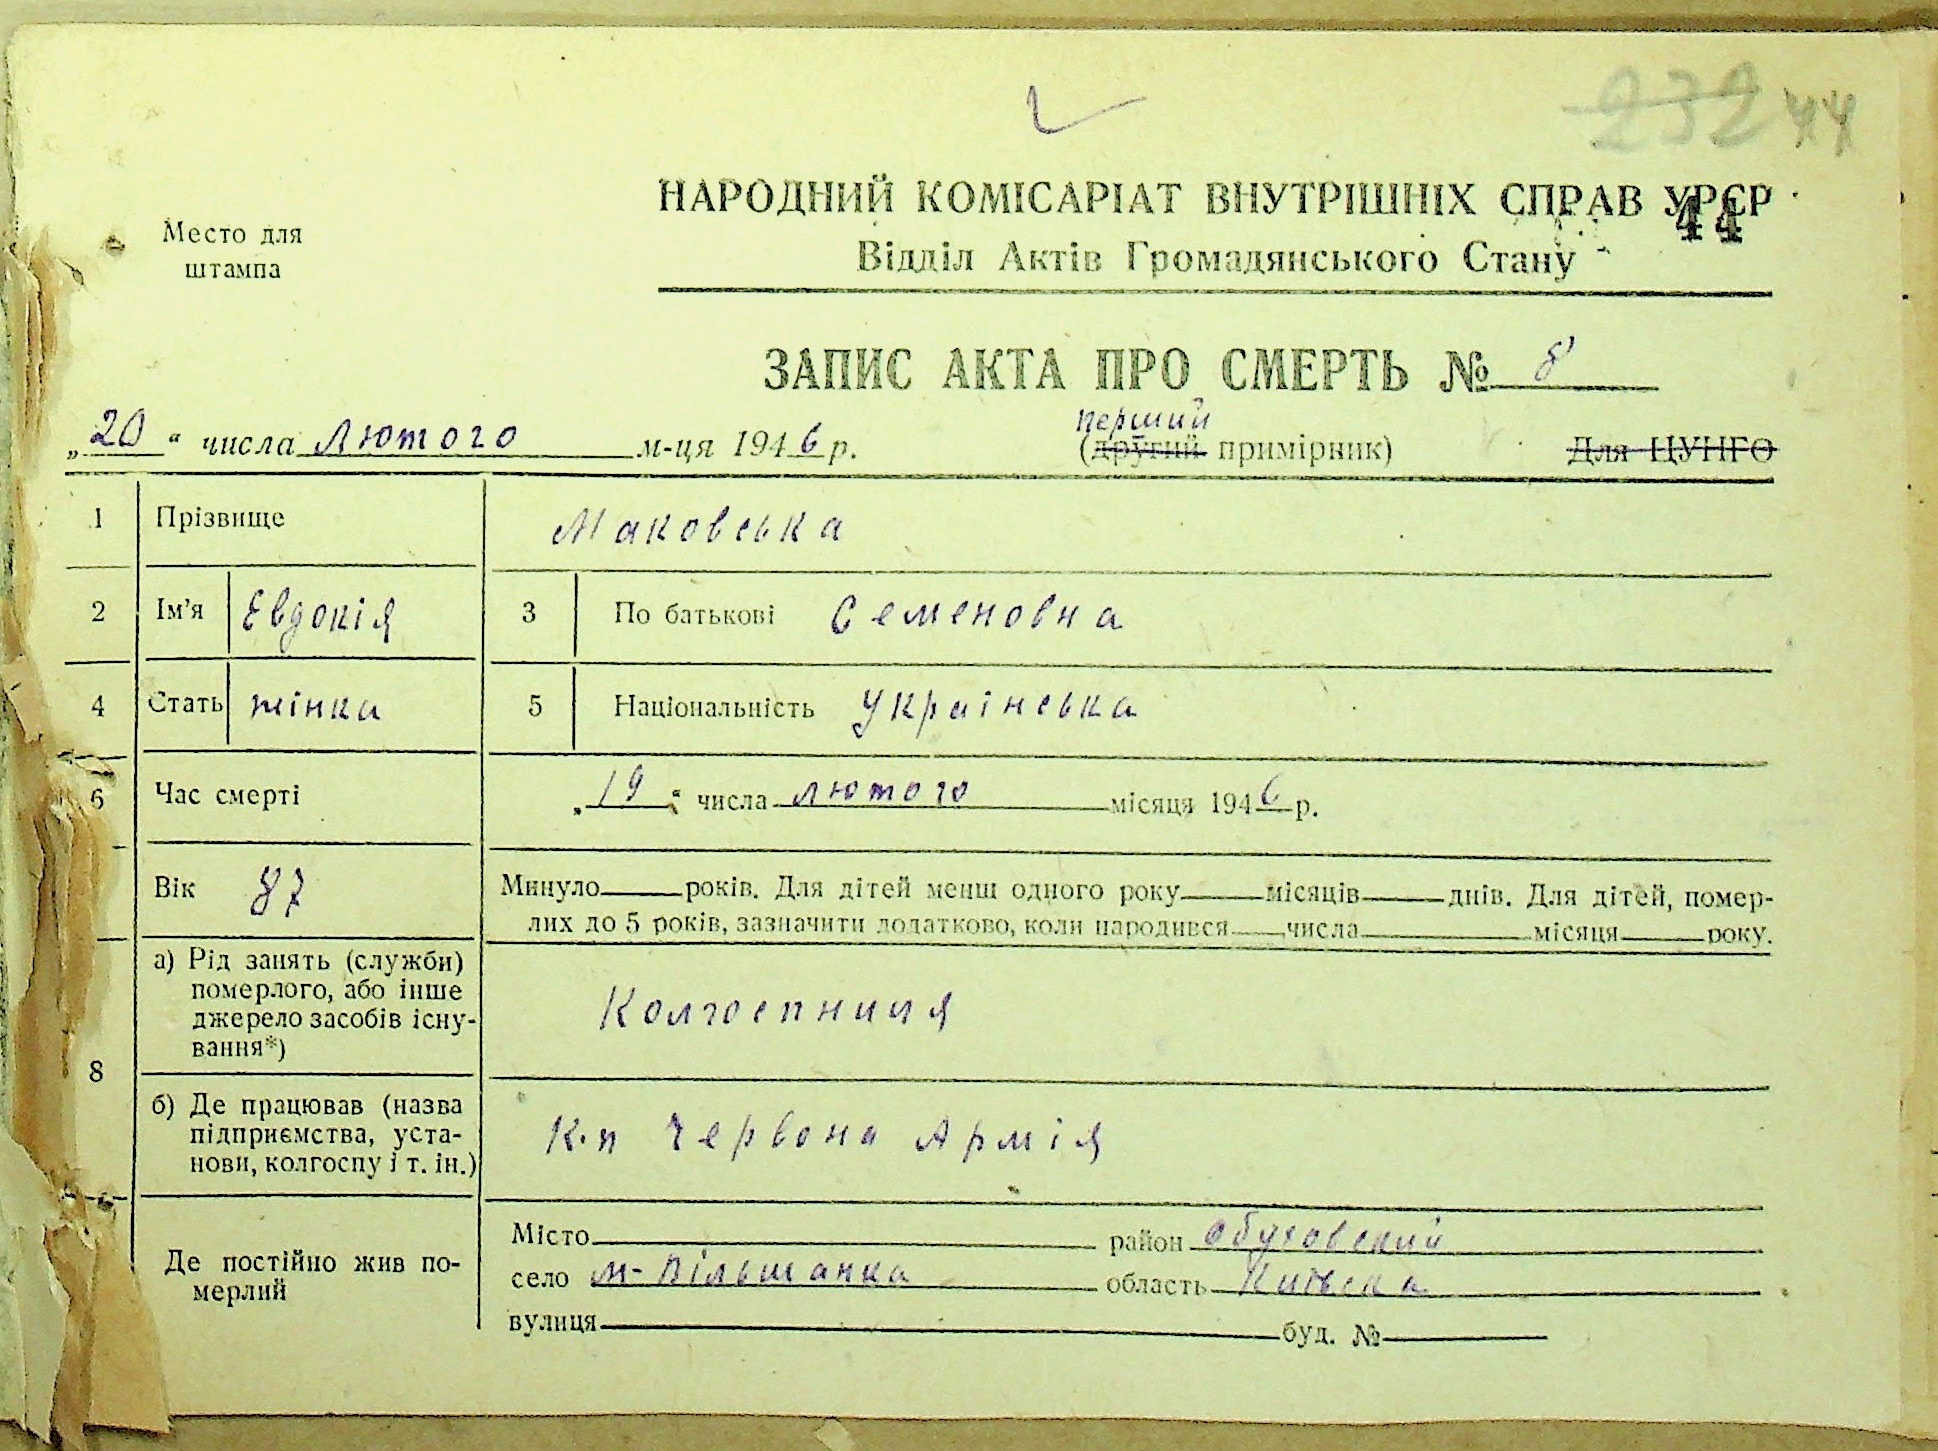 232 44
НАРОДНИЙ КОМІСАРІАТ ВНУТРІШНІХ СПРАВ УРСР
44
Место для
штампа
Відділ Актів Громадянського Стану
ЗАПИС АКТА ПРО СМЕРТЬ № 8
перший
„20“ числа Лютого м-ця 1946 р. (другий примірник) Для ЦУНГО
1 Прізвище Маковська
2 Ім'я Евдокія 3 По батькові Семеновна
4 Стать жінка 5 Національність Українська
6 Час смерті „19“ числа лютого місяця 1946 р.
Вік 87 Минуло року років. Для дітей менш одного року місяців днів. Для дітей, помер-
лих до 5 років, зазначити додатково, коли народився числа місяця року.
8 а) Рід занять (служби)
померлого, або інше
джерело засобів існу-
вання*)
Колгоспниця
б) Де працював (назва
підприємства, уста-
нови, колгоспу і т. ін.)
К-п Червона Армія
Де постійно жив по-
мерлий
Місто район Обуховский
село М-Вільшанка область Київска
вулиця буд. №